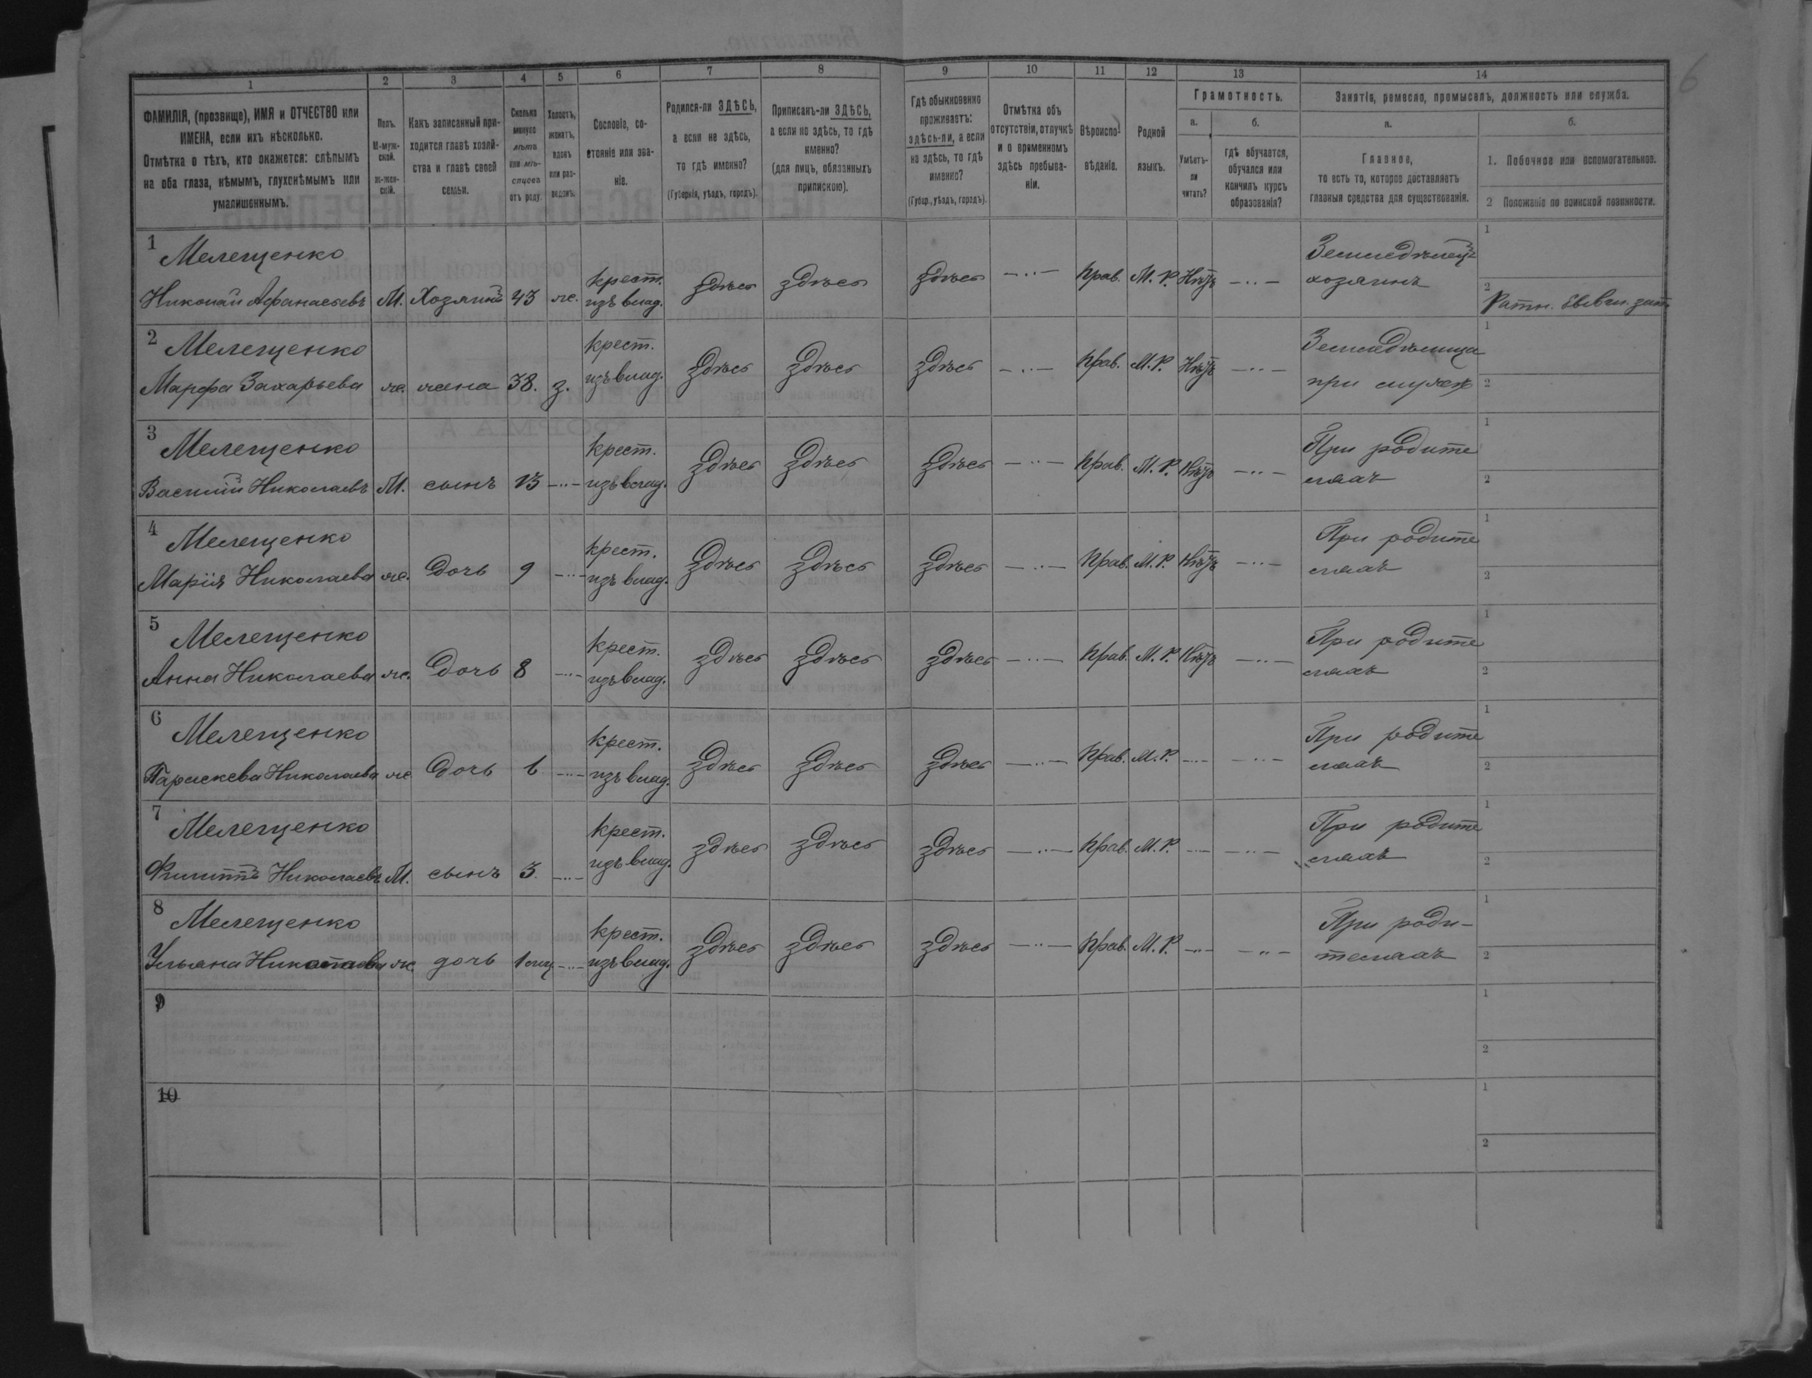 6
1 2 3 4 5 6 7 8 9 10 11 12 13 14
ФАМИЛІЯ, (прозвище), ИМЯ и ОТЧЕСТВО или
ИМЕНА, если ихъ нѣсколько.
Отмѣтка о тѣхъ, кто окажется: слѣпымъ
на оба глаза, нѣмымъ, глухонѣмымъ или
умалишеннымъ.
Полъ.
М-муж-
ской.
ж-жен-
скій.
Какъ записанный при-
ходится главѣ хозяй-
ства и главѣ своей
семьи.
Сколько
минуло
лѣтъ
или мѣ-
сяцевъ
отъ роду.
Холостъ,
женатъ,
вдовъ
или раз-
веденъ.
Сословіе, со-
стояніе или зва-
ніе.
Родился-ли ЗДѢСЬ,
а если не здѣсь,
то гдѣ именно?
(Губернія, уѣздъ, городъ).
Приписанъ-ли ЗДѢСЬ,
а если не здѣсь, то гдѣ
именно?
(для лицъ, обязанныхъ
припискою).
Гдѣ обыкновенно
проживаетъ:
здѣсь-ли, а если
не здѣсь, то гдѣ
именно?
(Губер., уѣздъ, городъ).
Отмѣтка объ
отсутствіи, отлучкѣ
и о временномъ
здѣсь пребыва-
ніи.
Вѣроиспо-
вѣданіе.
Родной
языкъ.
Грамотность.
а.
Умѣетъ-
ли
читать?
б.
гдѣ обучается,
обучался или
кончилъ курсъ
образованія?
Занятіе, ремесло, промыселъ, должность или служба.
а.
Главное,
то есть то, которое доставляетъ
главныя средства для существованія.
б.
1. Побочное или вспомогательное.
2 Положеніе по воинской повинности.
1 Мелещенко крест. Земледѣлецъ 1
Николай Афанасьевъ М. Хозяинъ 43 ж. изъ влад. здѣсь здѣсь здѣсь —··— Прав. М. Р. Нѣтъ —··— хозяинъ 2
2 Мелещенко крест. Земледѣлица 1
Марфа Захарьева ж. жена 38. з. изъ влад. здѣсь здѣсь здѣсь —··— Прав. М. Р. Нѣтъ —··— при мужѣ 2
3 Мелещенко крест. При родите 1
Василій Николаевъ М. сынъ 13 —··— изъ влад. здѣсь здѣсь здѣсь —··— Прав. М. Р. Нѣтъ —··— ляхъ 2
4 Мелещенко крест. При родите 1
Марія Николаева ж. дочь 9 —··— изъ влад. здѣсь здѣсь здѣсь —··— Прав. М. Р. Нѣтъ —··— ляхъ 2
5 Мелещенко крест. При родите 1
Анна Николаева ж. дочь 8 —··— изъ влад. здѣсь здѣсь здѣсь —··— Прав. М. Р. Нѣтъ —··— ляхъ 2
6 Мелещенко крест. При родите 1
Параскева Николаева ж. дочь 6 —··— изъ влад. здѣсь здѣсь здѣсь —··— Прав. М. Р. —··— —··— ляхъ 2
7 Мелещенко крест. При родите 1
Филиппъ Николаевъ М. сынъ 3 —··— изъ влад. здѣсь здѣсь здѣсь —··— Прав. М. Р. —··— —··— ляхъ 2
8 Мелещенко крест. При роди- 1
Ульяна Николаева ж. дочь —··— изъ влад. здѣсь здѣсь здѣсь —··— Прав. М. Р. —··— —··— теляхъ 2
9 1
2
10 1
2